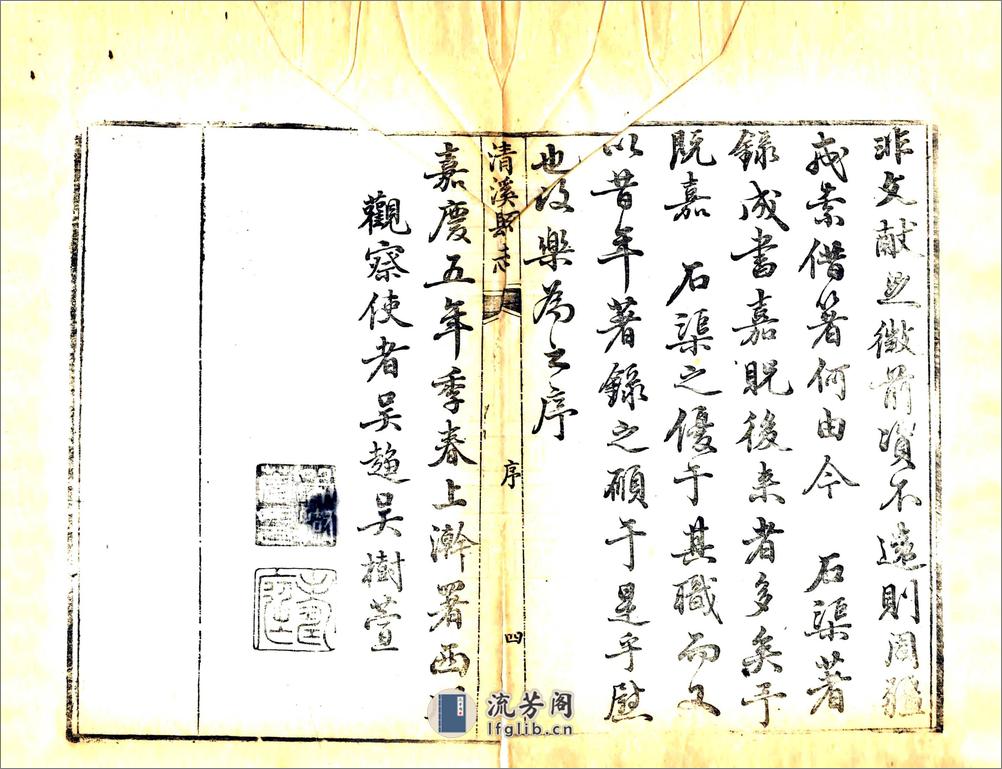 非文献無徵前賢不遠則因緣
或素借箸何由今　石渠著
錄成書嘉貺後来者多矣予
既嘉　石渠之優于其職而又
以昔年著錄之願于是乎慰
也故樂為之序
清溪縣志
序
四
嘉慶五年季春上澣署西
觀察使者吳趨吳樹萱
流芳阁
lfglib.cn